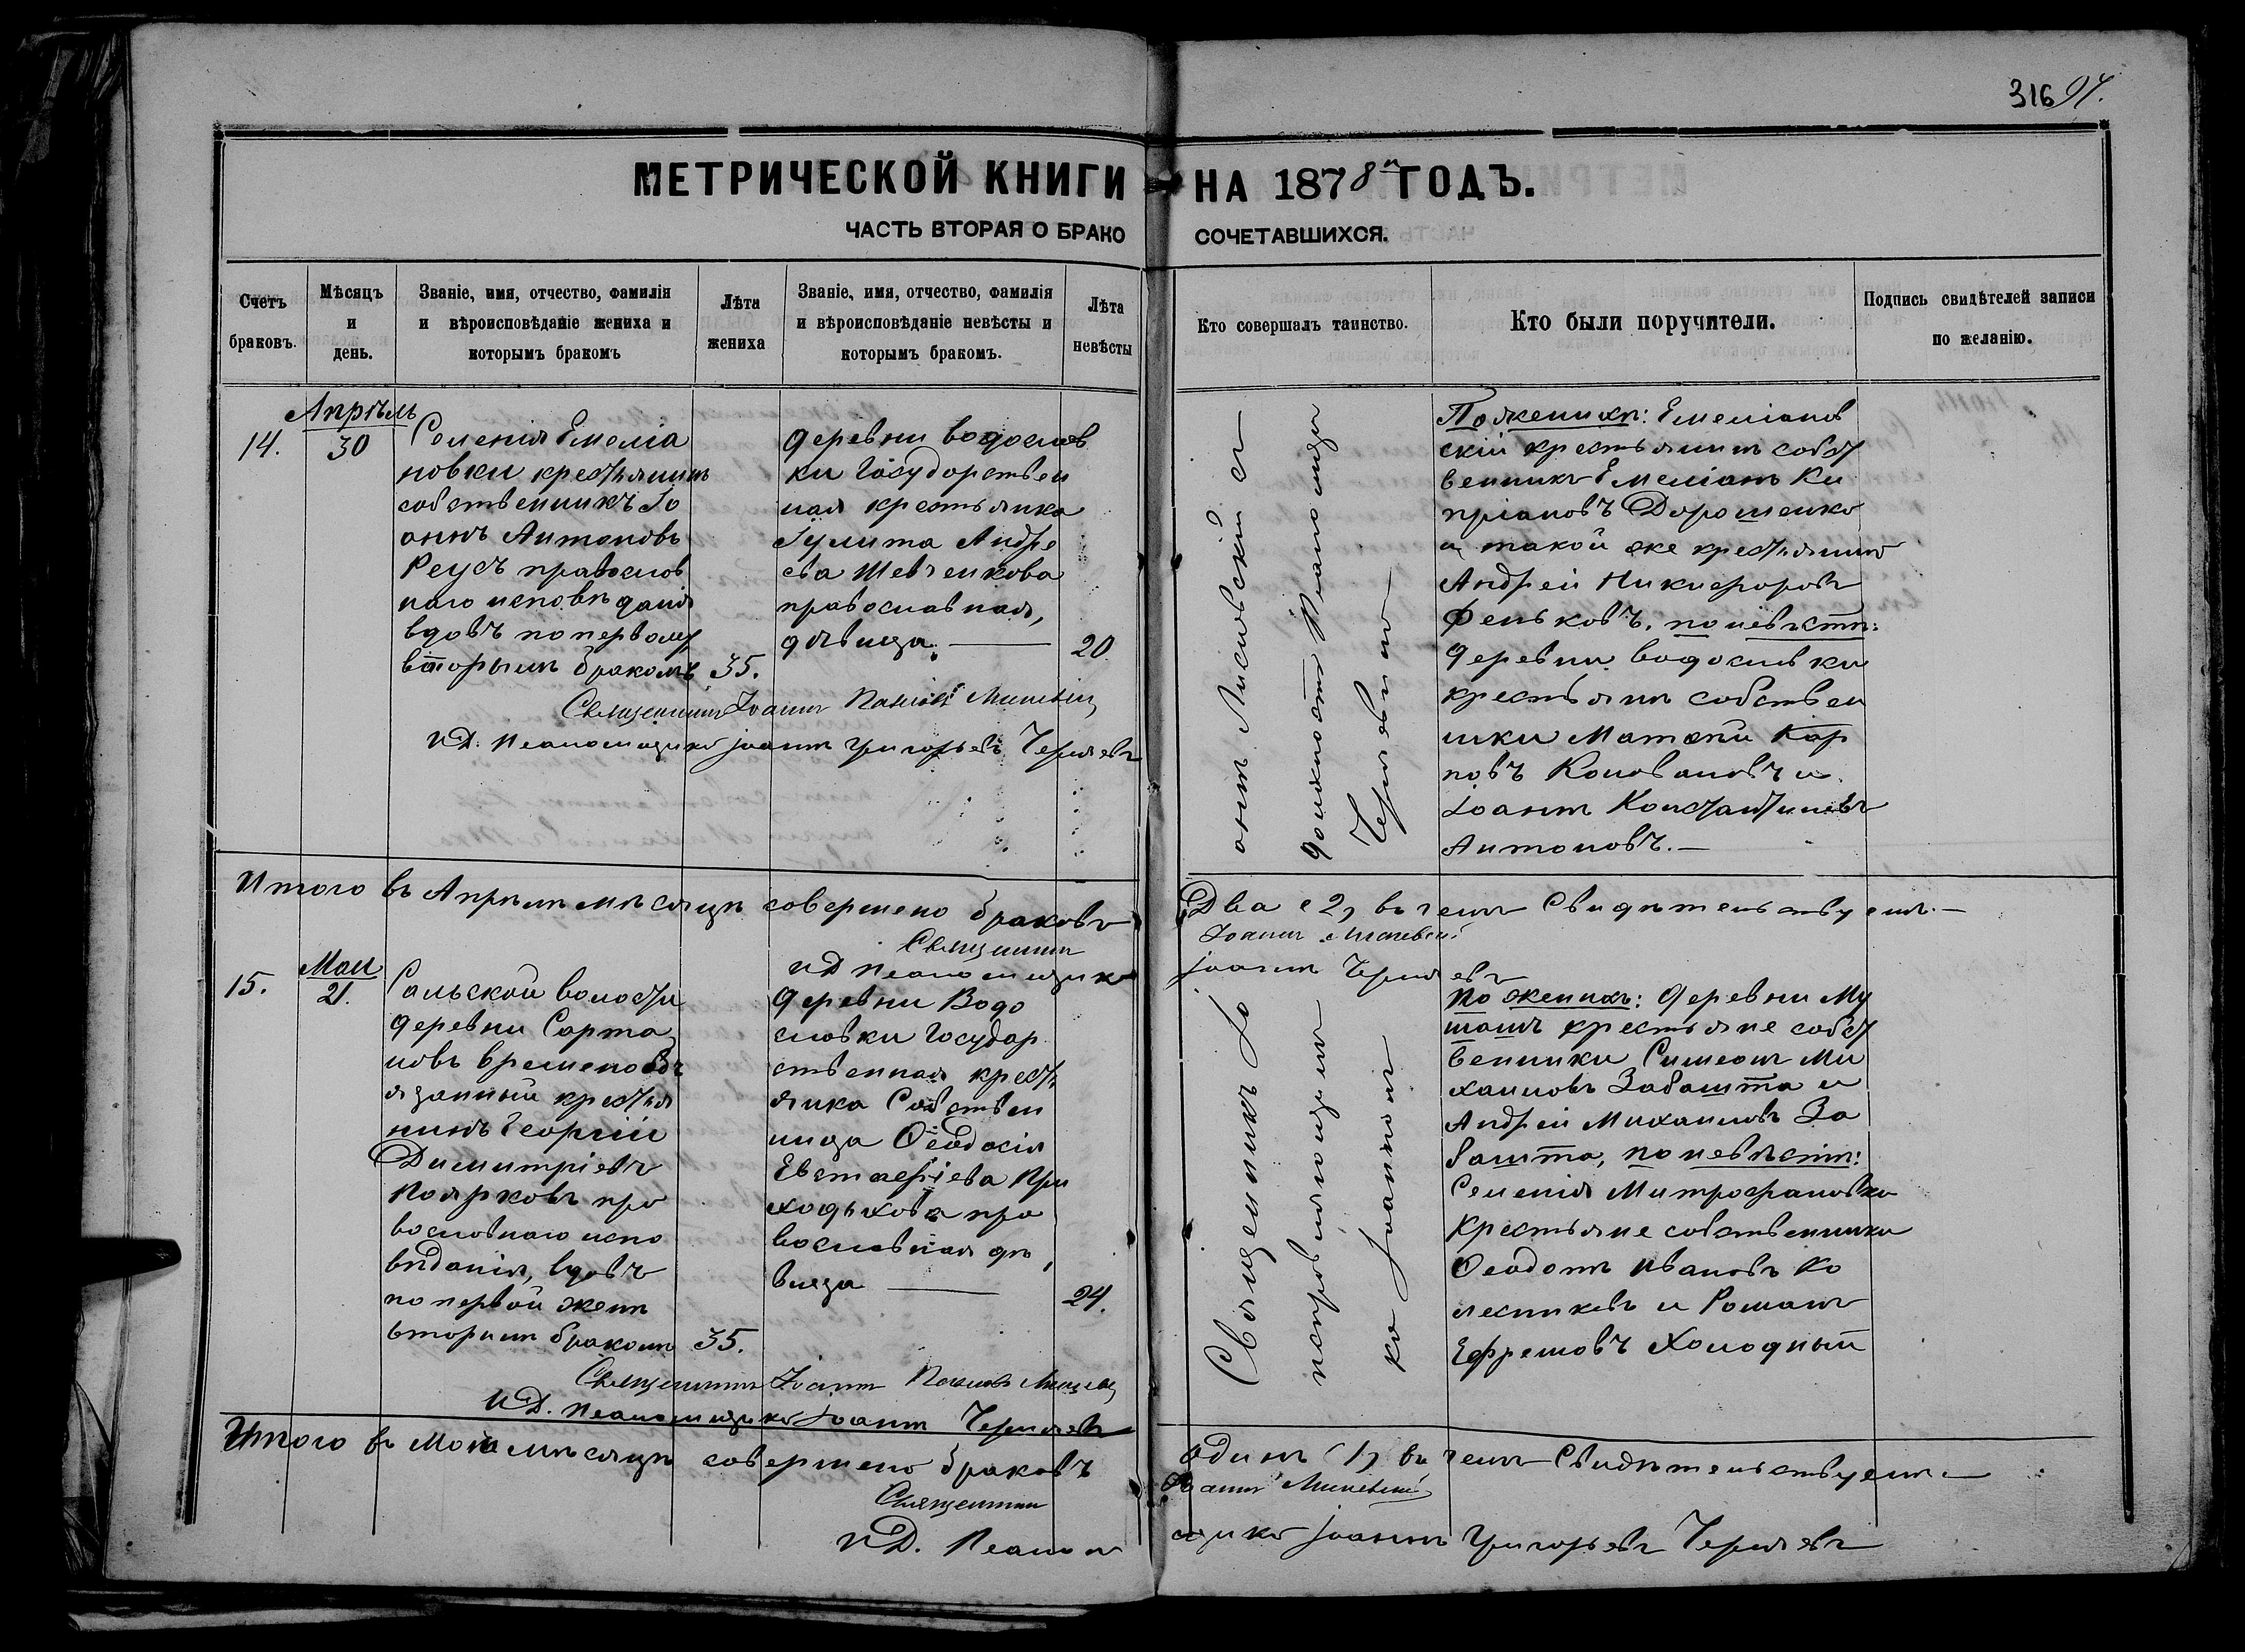 316 94.
МЕТРИЧЕСКОЙ КНИГИ НА 1878й ГОДЪ.
ЧАСТЬ ВТОРАЯ О БРАКО СОЧЕТАВШИХСЯ.
Счетъ браковъ.
Мѣсяцъ и день.
Званіе, имя, отчество, фамилія
и вѣроисповѣданіе жениха и
которымъ бракомъ
Лѣта жениха
Званіе, имя, отчество, фамилія
и вѣроисповѣданіе невѣсты и
которымъ бракомъ.
Лѣта невѣсты
Кто совершалъ таинство.
Кто были поручители.
Подпись свидѣтелей записи
по желанію.
14.
Апрѣль
30
Селенія Емелія
новки крестьянинъ
собственникъ Іо
аннъ Антоновъ
Реусъ православ
наго исповѣданія
вдовъ по первому
вторымъ бракомъ 35.
деревни водослав
ки Государствен
ная крестьянка
Іулита Андре
ева Шевченкова
православная,
дѣвица. — 20.
Священникъ Іоаннъ
И.Д. Псаломщика Іоаннъ Григорьевъ
анъ
должность Псаломщика
По женихѣ: Емеліанов
скій крестьянинъ собст
венникъ Емеліанъ Ки
пріановъ Дорошенко
и такой же крестьянинъ
Андрей Никифоровъ
Феньковъ, по невѣстѣ:
деревни водославки
крестьяне собствен
ники Матфѣй Кар
повъ Коноваловъ и
Іоаннъ Константиновъ
Антоновъ. —
Итого въ Апрѣлѣ мѣсяцѣ совершено браковъ Два (2) въ чемъ Свидѣтельствуемъ. —
Священникъ Іоаннъ
И.Д. Псаломщика Іоаннъ
15.
Май
21.
Сальской волости
деревни Сарта
новъ временооб
язанный крестья
нинъ Георгій
Димитріевъ
Поярковъ пра
вославнаго испо
вѣданія, вдовъ
по первой женѣ
вторымъ бракомъ 35.
деревни Водо
славки Государ
ственная кресть
янка Собствен
ница Ѳеодосія
Евстафіева При
ходькова пра
вославная дѣ
вица — 24.
Священникъ Іоаннъ
И.Д. Псаломщика Іоаннъ
Священникъ Іо
По женихѣ: деревни Му
шатъ крестьяне собст
венники Симеонъ Ми
хаиловъ Забашта и
Андрей Михаиловъ За
башта, по невѣстѣ:
Селенія Митрофановки
Крестьяне собственники
Ѳеодотъ Ивановъ Ко
лесниковъ и Романъ
Ефремовъ Холодный
Итого въ Маѣ мѣсяцѣ совершено браковъ одинъ (1) въ чемъ Свидѣтельствуемъ —
Священникъ Іоаннъ
И.Д. Псалом
щика Іоаннъ Григорьевъ